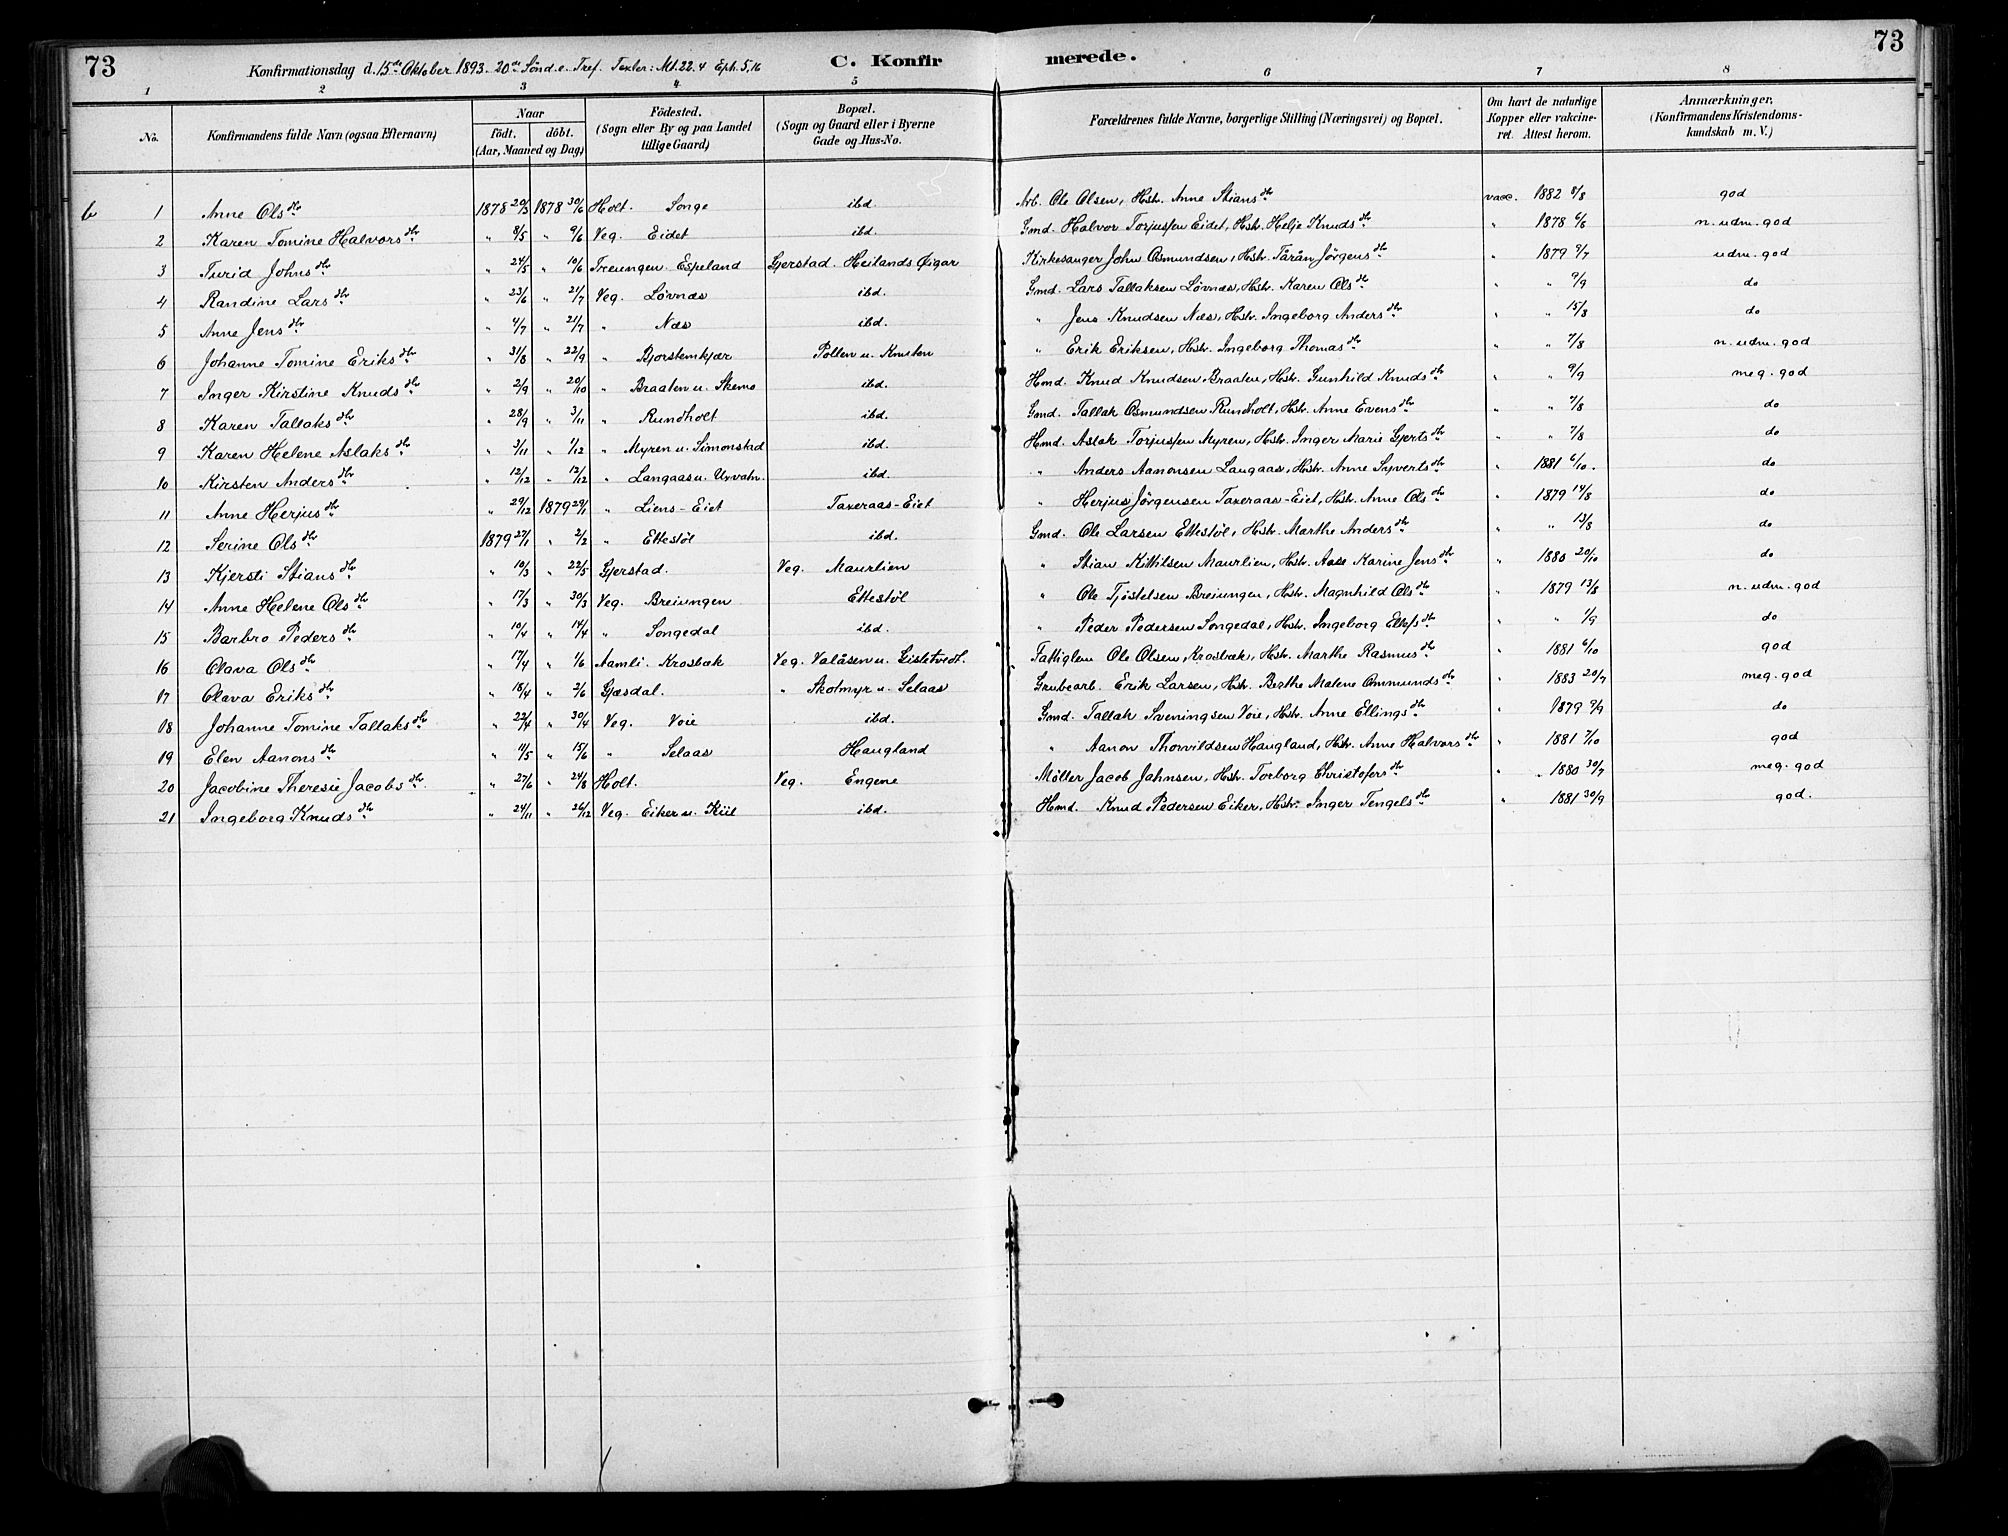 73 Konfirmationsdag d. 15de Oktober 1893. 20de Sønd. e. Tref. Texter: Mt. 22.4 Eph. 5,16 C. Konfirmerede. 73
1 2 3 4 5 6 7 8
No. Konfirmandens fulde Navn (ogsaa Efternavn) Naar födt. döbt. (Aar, Maaned og Dag) Födested. (Sogn eller By og paa Landet tillige Gaard) Bopæl. (Sogn og Gaard eller i Byerne Gade og Hus-No. Forældrenes fulde Navne, borgerlige Stilling (Næringsvei) og Bopæl. Om havt de naturlige Kopper eller vakcineret. Attest herom. Anmærkninger. (Konfirmandens Kristendomskundskab m. V.)
b 1 Anne Olsdtr 1878 20/3 1878 30/6 Holt. Songe ibd. Arb. Ole Olsen, Hstr. Anne Stiansdtr vacc. 1882 8/8 god
2 Karen Tomine Halvorsdtr " 8/5 " 9/6 Veg. Eidet ibd. Gmd. Halvor Torjussen Eidet, Hstr. Helje Knudsdtr " 1878 6/8 n. udm. god
3 Turid Johnsdtr " 24/5 " 10/6 Treungen. Espeland Gjerstad. Heilands Øigar Kirkesanger John Osmundsen, Hstr. Tårån Jörgensdtr " 1879 9/7 udm. god
4 Randine Larsdtr " 23/6 " 21/7 Veg. Løvnæs ibd. Gmd. Lars Tallaksen Løvnæs, Hstr. Karen Olsdtr " " 9/9 do
5 Anne Jensdtr " 4/7 " 21/7 " Næs ibd. " Jens Knudsen Næs, Hstr. Ingeborg Andersdtr " " 15/8 do
6 Johanne Tomine Eriksdtr " 31/8 " 22/9 " Bjorstemkjær Pollen u. Knuten " Erik Eriksen, Hstr. Ingeborg Thomasdtr " " 7/8 n. udm. god
7 Inger Kirstine Knudsdtr " 2/9 " 20/10 " Braaten u. Skemo ibd. Hmd. Knud Knudsen Braaten, Hstr. Gunhild Knudsdtr " " 9/9 meg. god
8 Karen Tallaksdtr " 28/9 " 3/11 " Rundholt ibd. Gmd. Tallak Osmundsen Rundholt, Hstr. Anne Evensdtr " " 7/8 do
9 Karen Helene Aslaksdtr " 3/11 " 1/12 " Myren u. Simonstad ibd. Hmd. Aslak Torjussen Myren, Hstr. Inger Marie Gjertsdtr " " 7/8 do
10 Kirsten Andersdtr " 12/12 " 12/12 " Langaas u. Urvatn. ibd. " Anders Aanonsen Langaas, Hstr. Anne Syvertsdtr " 1881 6/10. do
11 Anne Herjusdtr " 29/12 1879 29/1 " Liens-Eiet Taxeraas-Eiet " Herjus Jörgensen Taxeraas-Eiet, Hstr. Anne Olsdtr " 1879 14/8 do
12 Serine Olsdtr 1879 27/1 " 2/2 " Ettestøl ibd. Gmd. Ole Larsen Ettestøl, Hstr. Marthe Andersdtr " " 13/8 do
13 Kjersti Stiansdtr " 10/3 " 22/5 Gjerstad. Veg. Maurlien " Stian Kittilsen Maurlien, Hstr. Aase Karine Jensdtr " 1880 20/10 do
14 Anne Helene Olsdtr " 17/3 " 30/3 Veg. Breiungen Ettestøl " Ole Tjöstelsen Breiungen, Hstr. Magnhild Olsdtr " 1879 13/8 n. udm. god
15 Barbro Pedersdtr " 10/4 " 14/4 " Songedal ibd. " Peder Pedersen Songedal, Hstr. Ingeborg Elefsdtr " " 1/9 do
16 Olava Olsdtr " 17/4 " 1/6 Aamli. Krosbæk Veg. Valåsen u. Gistetvedt. Fattiglem Ole Olsen, Krosbæk, Hstr. Marthe Rasmusdtr " 1881 6/10 god
17 Olava Eriksdtr " 18/4 " 2/6 Gjæsdal. " Skotmyr u. Selaas Grubearb. Erik Larsen, Hstr. Berthe Malene Ommundsdtr " 1883 20/7 meg. god
18 Johanne Tomine Tallaksdtr " 22/4 " 30/4 Veg. Voie ibd. Gmd. Tallak Sveningsen Voie, Hstr. Anne Ellingsdtr " 1879 9/9 do
19 Elen Aanonsdtr " 11/5 " 15/6 " Selaas Haugland " Aanon Thorvildsen Haugland, Hstr. Anne Halvorsdtr " 1881 7/10 god
20 Jacobine Theresie Jacobsdtr. " 27/6 " 24/8 Holt. Veg. Engene Möller Jacob Jahnsen, Hstr. Torborg Christofersdtr " 1880 30/7 meg. god
21 Ingeborg Knudsdtr " 24/11 " 26/12 Veg. Eiker u. Kiil ibd. Hmd. Knud Pedersen Eiker, Hstr. Inger Tengelsdtr " 1881 30/9 god.